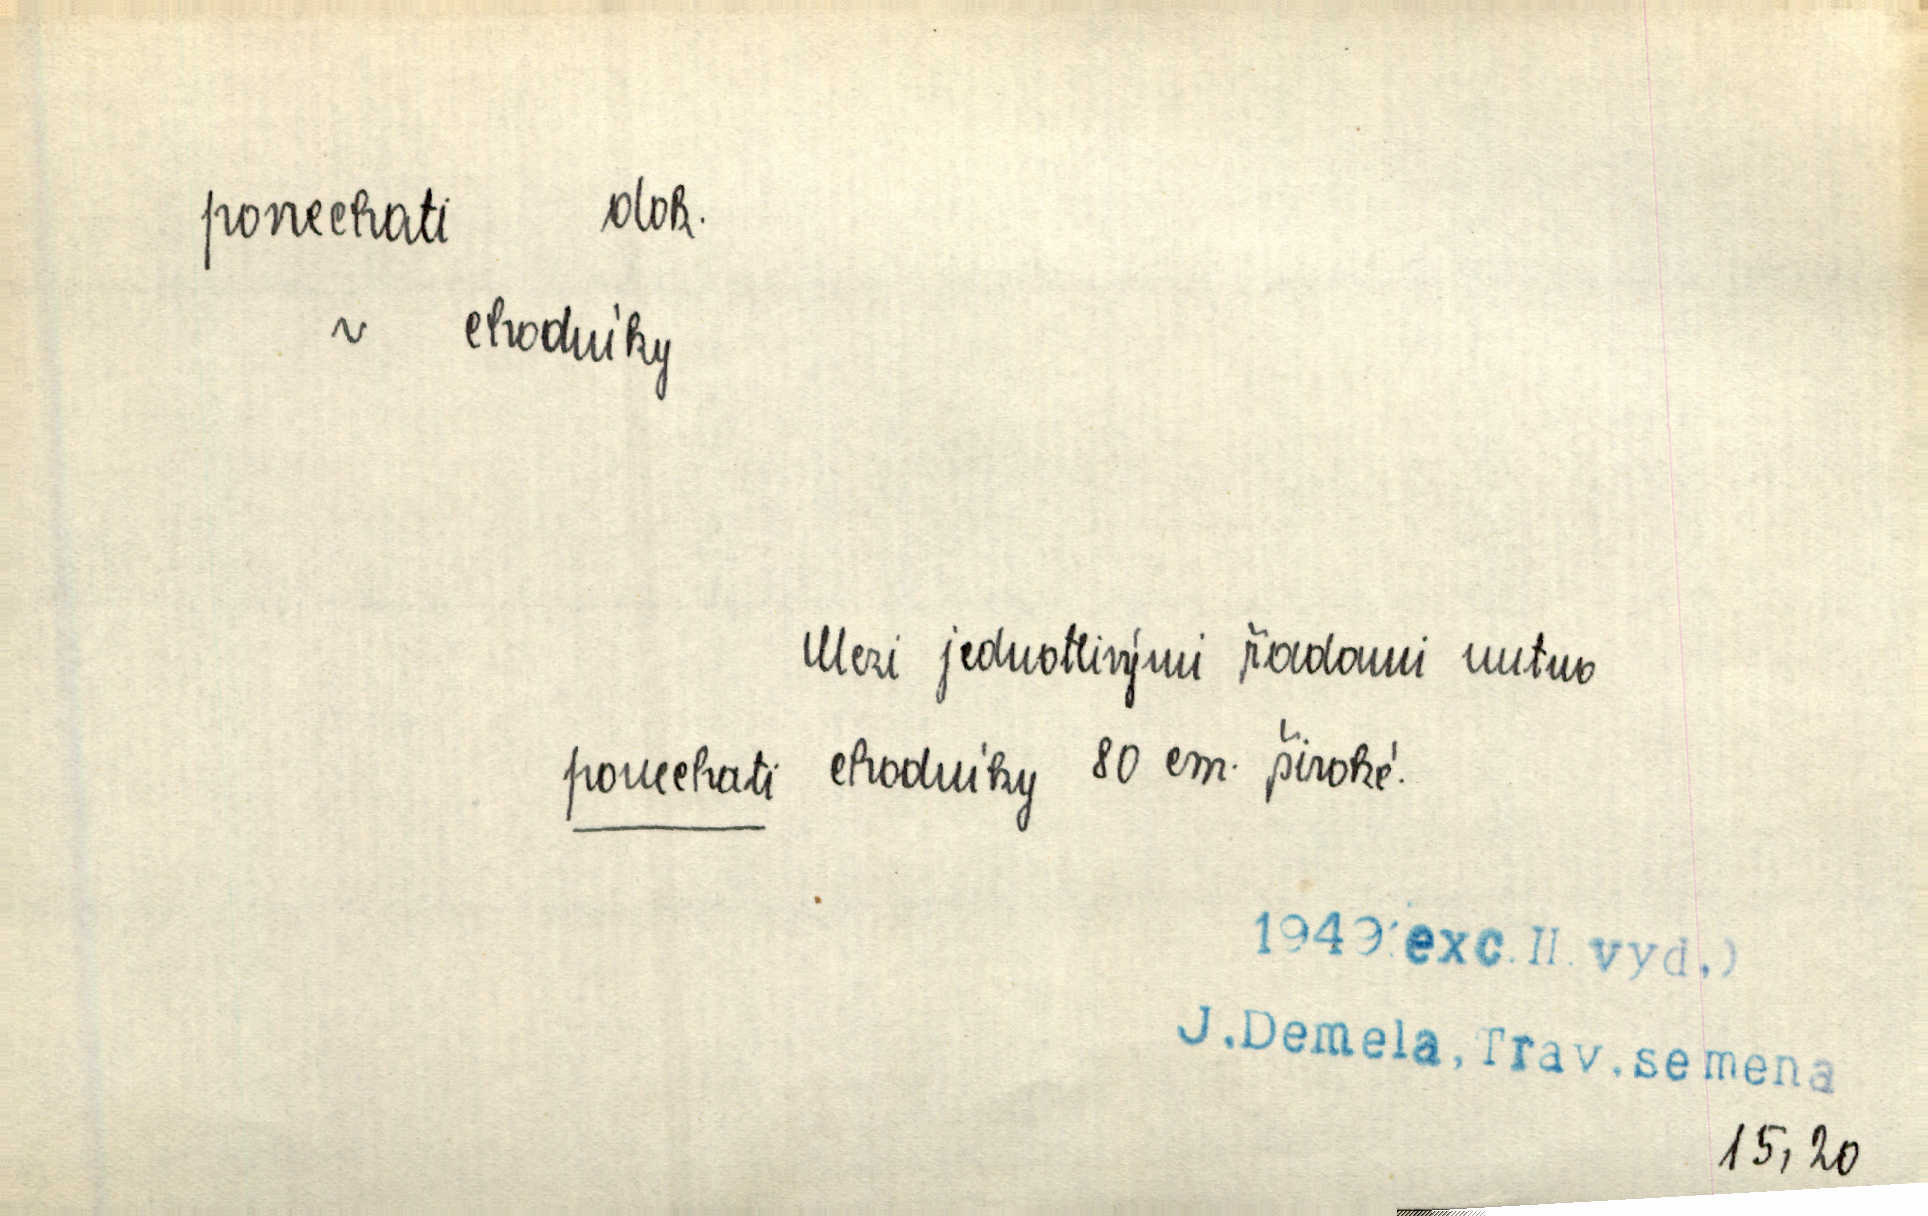 ponechati dok.
~ chodníky
Mezi jednotlivými řadami nutno
ponechati chodníky 80 cm. široké.
1949(exc. II. vyd.)
J.Demela,Trav.semena
15, 20